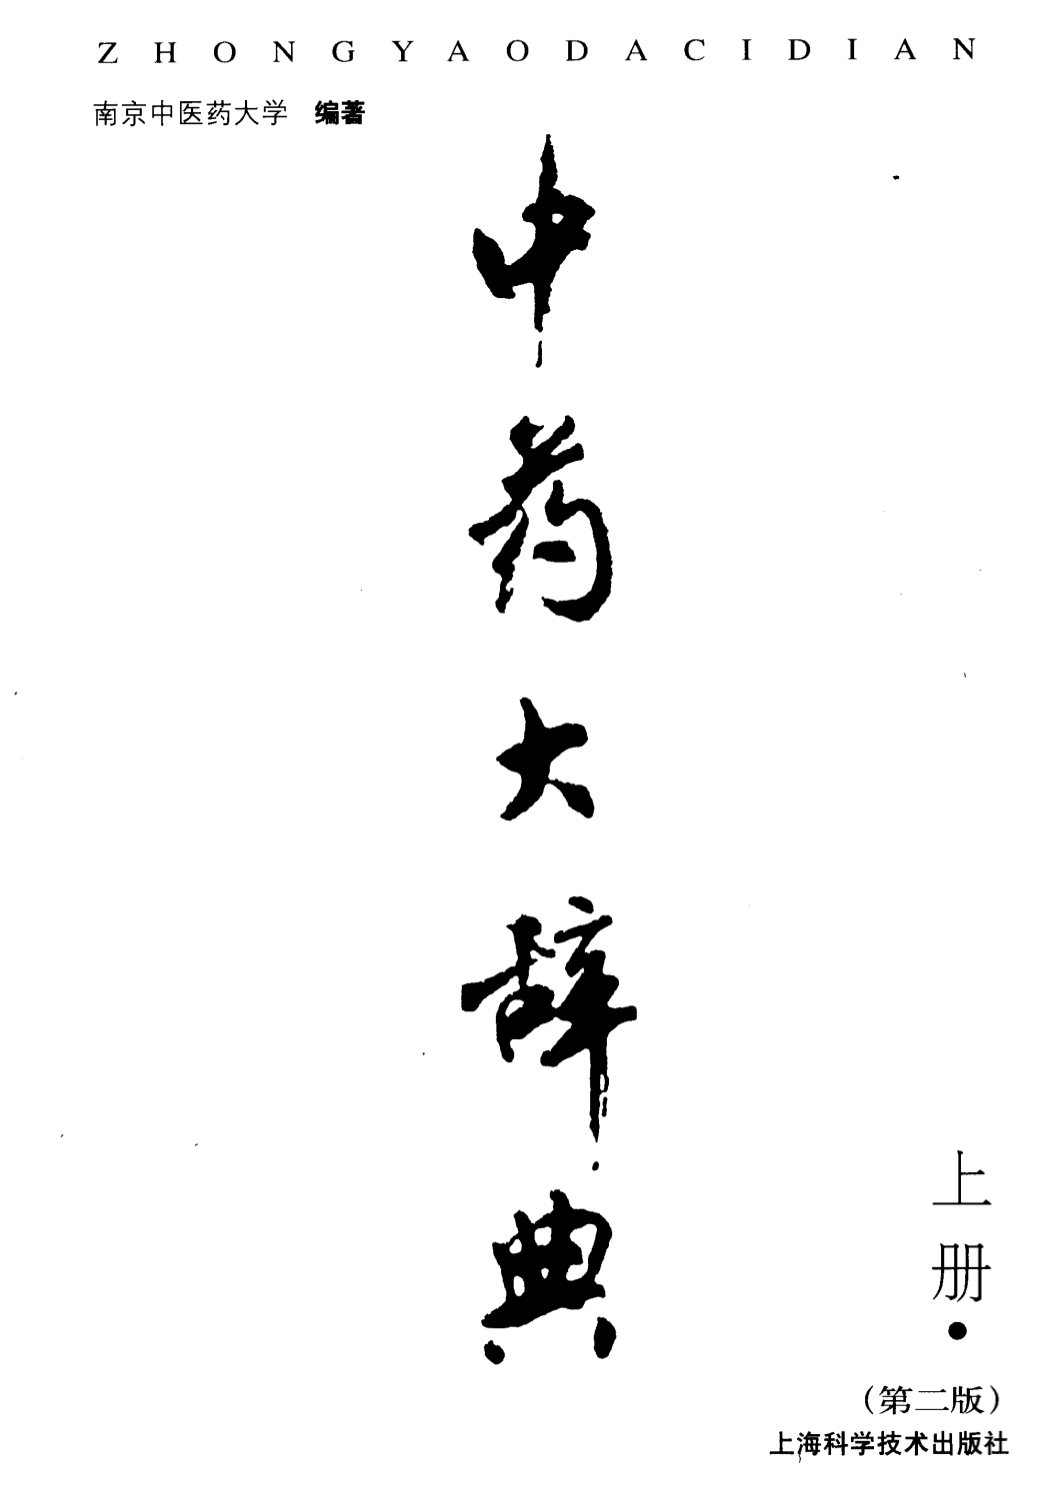 ZHONGYAODACIDIAN
南京中医药大学 编著
中药大辞典
上册·
（第二版）
上海科学技术出版社